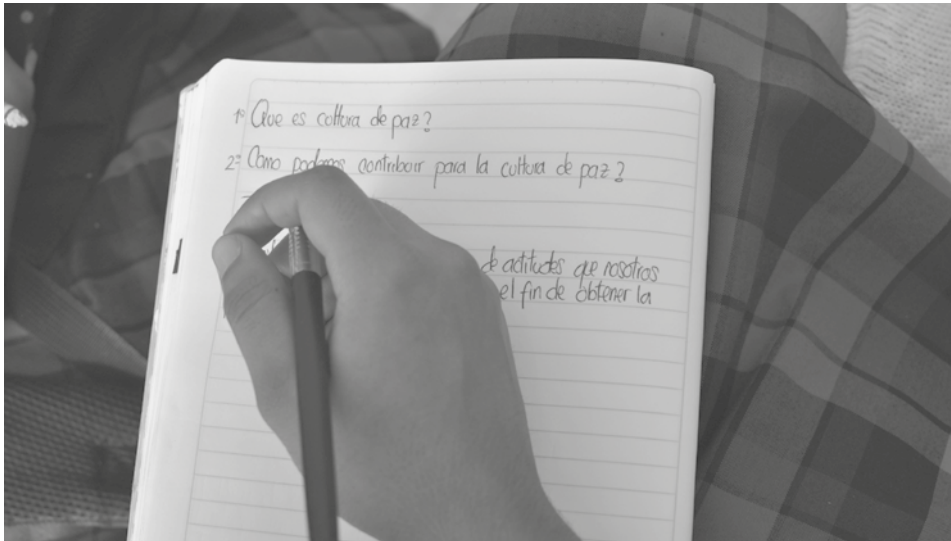 1º Que es cultura de paz?
2º Como podemos contribuir para la cultura de paz?
de actitudes que nosotros
el fin de obtener la